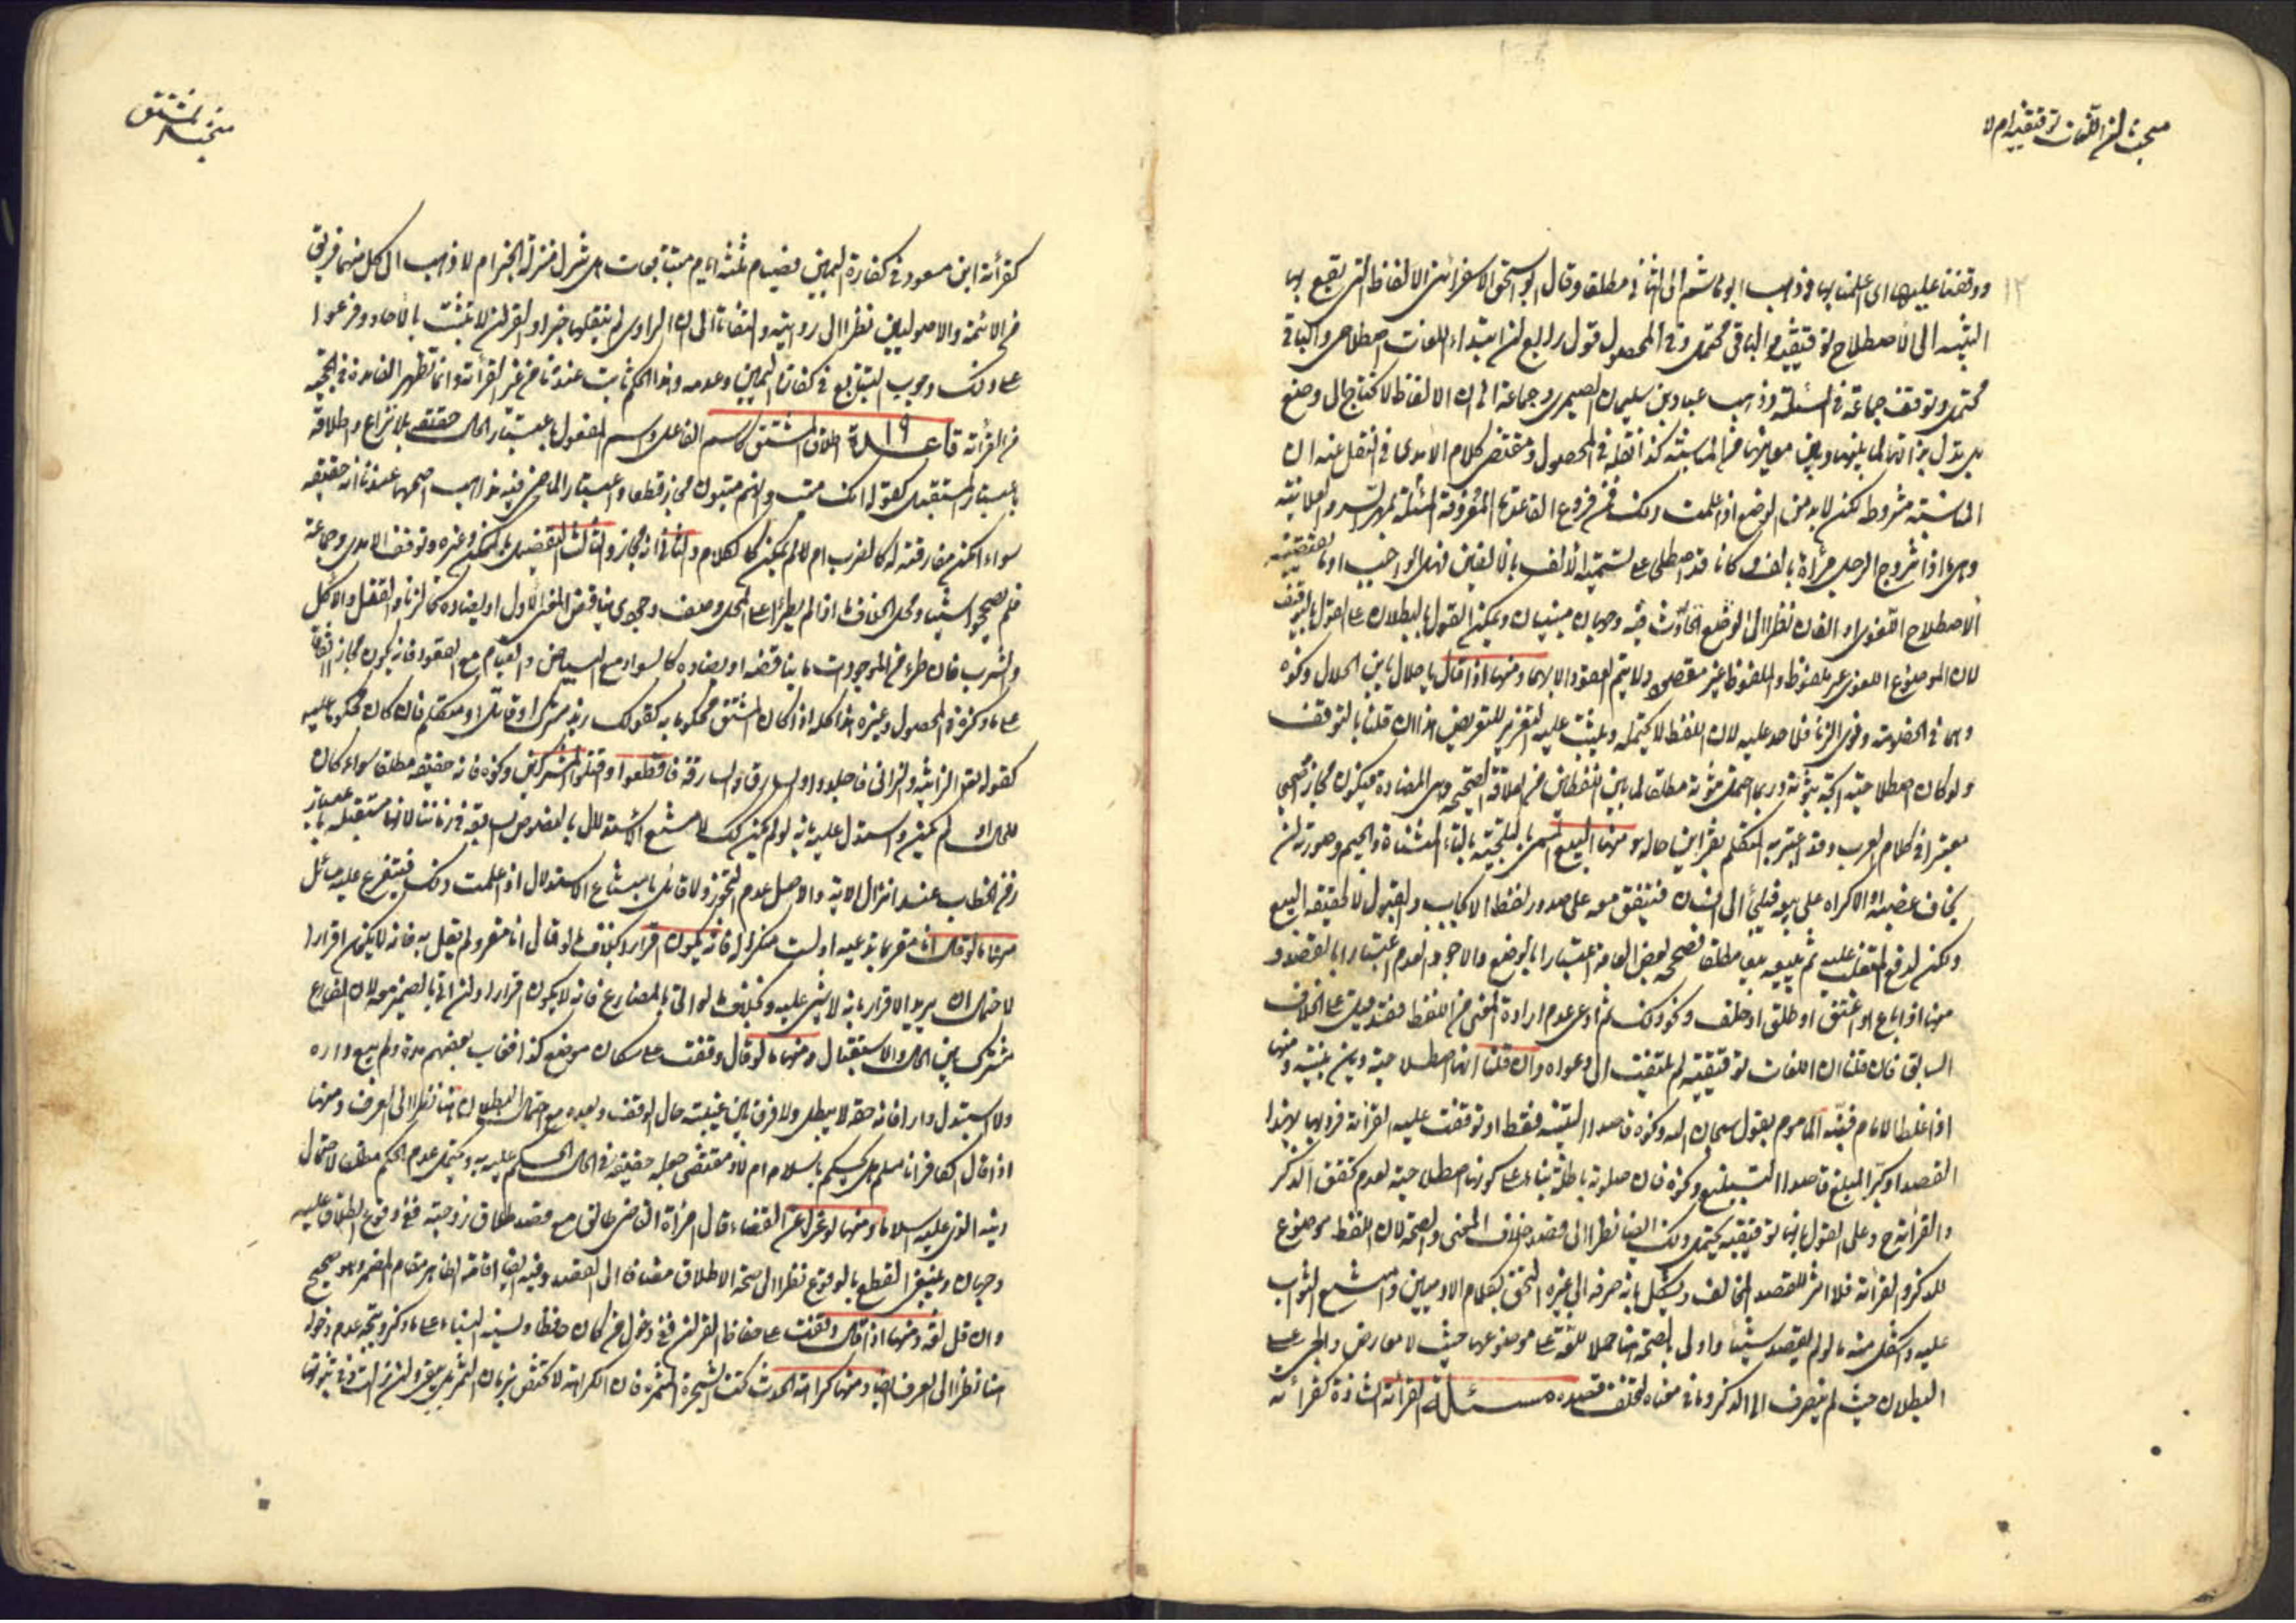 مبحث في ان اللغات توقيفية ام لا
١٢
ووقفنا عليها اى اعلمنا بها وذهب ابو هاشم الى الثانى مطلقا وقال ابو اسحق الاسفرائنى الالفاظ التى يقع بها
التنبيه الى الاصطلاح توقيفية والباقى محتمل وفى المحصول قول رابع ان ابتداء اللغات اصطلاحى والباقى
محتمل وتوقف جماعة فى المسئلة وذهب عباد بن سليمان الصيمرى وجماعة الى ان الالفاظ لا تحتاج الى وضع
بل تدل بذاتها لما بينها وبين معانيها من المناسبة كذا نقله فى المحصول ومقتضى كلام الآمدى فى النقل عنه ان
المناسبة مشروطة لكن لا بد من الوضع اذا علمت ذلك فمن فروع القاعدة المعروفة بمهر السر والعلانية
وهى ما اذا تزوج الرجل امرأة بالف وكانا قد اصطلحا على تسمية الالف بالالفين فهل الواجب او ما يقتضيه
الاصطلاح اللغوى او الفان نظرا الى الوضع الحادث فيه وجهان مبنيان ويمكن القول بالبطلان على القول بالتوقيف
لان الموضوع اللغوى غير ملفوظ والملفوظ غير مقصود ولا يتم العقود الا بهما ومنها اذا قال يا حلال يا بن الحلال ونحوه
وهما فى الخصومة ونوى الزنا فلا حد عليه لان اللفظ لا يحتمله ويثبت عليه التعزير للتعريض هذا ان قلنا بالتوقف
ولو كان اصطلاحية اتجه ثبوته وربما احتمل ثبوته مطلقا لما بين اللفظين من العلاقة الصحيحة وهى المضادة فيكون مجازا صحيحا
معتبرا فى كلام العرب وقد اعتبر به المتكلم بقراين حاله ومنها البيع المسمى بالتلجئة بالتاء المثناة والجيم وصورته ان
يخاف غصبه او الاكراه على بيعه فيلجئ الى انسان فيتفق معه على صدور لفظ الايجاب والقبول لا لحقيقة البيع
ولكن لدفع المتغلب عليه ثم يبيعه بيعا مطلقا فصححه بعض العامة اعتبارا بالوضع والاجود العدم اعتبارا بالقصد و
منها اذا باع او اعتق او طلق او حلف ونحو ذلك ثم ادعى عدم ارادة المعنى من اللفظ فقد قيل على الخلاف
السابق فان قلنا ان اللغات توقيفية لم يلتفت الى دعواه وان قلنا انها اصطلاحية دين بنيته ومنها
اذا غلط الامام فنبّه المأموم بقول سبحان الله ونحوه قاصدا التنبيه فقط او توقفت عليه القراءة فرد بها بهذا
القصد او كبر المبلغ قاصدا التبليغ ونحوه فان صلوته باطلة بناء على كونها اصطلاحية لعدم تحقق الذكر
والقراءة ح وعلى القول بانها توقيفية يحتمل ذلك ايضا نظرا الى قصد خلاف المعنى والصحة لان اللفظ موضوع
للذكر والقراءة فلا اثر للقصد المخالف ويشكل بانه صرفه الى غيره التحق بكلام الادميين وامتنع الثواب
عليه واشكل منه ما لو لم يقصد شيئا واولى بالصحة هنا حملا للغة على موضوعها حيث لا معارض والحرى على
البطلان حيث لم ينصرف الى الذكر وما فى معناه لتخلف قصده مسئلة القراءة الشاذة كقراءته
مبحث المشتق
كقرأة ابن مسعود فى كفارة اليمين فصيام ثلثة ايام متتابعات هل تنزل منزلة الخبر ام لا ذهب الى كل منهما فريق
من الائمة والاصوليين نظرا الى روايته والتفاتا الى ان الراوى لم ينقلها خبرا والقران لا يثبت بالاحاد وفرعوا
على ذلك وجوب التتابع فى كفارة اليمين وعدمه وهذا الحكم ثابت عندنا من غير القرأة وانما تظهر الفايدة فى الحجية
من القرأة قاعدة ١٩ اطلاق المشتق كاسم الفاعل واسم المفعول باعتبار الحال حقيقة بلا نزاع واطلاقه
باعتبار المستقبل كقوله انك ميت وانهم ميتون مجاز قطعا واعتبار الماضى فيه مذاهب اصحها عندنا انه حقيقة
سواء امكن مقارنته له كالضرب ام لا لم يمكن كالكلام والثانى انه مجاز والثالث التفصيل بالممكن وغيره وتوقف الامدى وجماعة
فلم يصححوا شيئا ومحل الخلاف ما اذا لم يطرأ على المحل وصف وجودى يناقض المعنى الاول او يضاده كالزنا والقتل والاكل
والشرب فان طرء من الموجودات ما يناقضه او يضاده كالسواد مع البياض والقيام مع القعود فانه يكون مجازا اتفاقا
على ما ذكره فى المحصول وغيره هذا كله اذا كان المشتق محكوما به كقولك زيد مشرك او قاتل او متكلم فان كان محكوما عليه
كقوله تعالى الزانية والزانى فاجلدوا والسارق والسارقة فاقطعوا واقتلوا المشركين ونحوه فانه حقيقة مطلقا سواء كان
للحال او لم يكن واستدل عليه بانه لو لم يكن كذلك لامتنع الاستدلال بالنصوص السابقة فى زماننا لانها مستقبلة باعتبار
زمن الخطاب عند انزال الاية والاصل عدم التجوز ولا قائل بامتناع الاستدلال اذا علمت ذلك فيتفرع عليه مسائل
منها ما لو قال انا مقر بما تدعيه او لست منكرا له فانه يكون اقرارا بخلاف ما لو قال انا مقر ولم يقل به فانه لا يكون اقرارا
لاحتمال ان يريد الاقرار بانه لا شىء عليه وبخلاف ما لو اتى بالمضارع فانه لا يكون اقرارا وان اتى بالضمير معه لان المضارع
مشترك بين الحال والاستقبال ومنها ما لو قال وقفت على سكان موضع كذا فغاب بعضهم مدة ولم يبع داره
ولا استبدل دارا فان حقه لا يبطل ولا فرق بين غيبته حال الوقف وبعده مع احتمال البطلان هنا نظرا الى العرف ومنها
اذا قال الكافر انا مسلم هل يحكم باسلامه ام لا ومقتضى جعله حقيقة فى الحال الحكم عليه به ويحتمل عدم الحكم مطلقا لاحتمال
دينه الذى عليه اسلاما ومنها لو عزل عن القضاء قال امرأة القاضى طالق مع قصد طلاق زوجته ففى وقوع الطلاق عليه
وجهان وينبغى القطع بالوقوع نظرا الى صحة الاطلاق مضافا الى القصد وفيه ايضا اقامة الظاهر مقام المضمر وهو صحيح
وان قل لغة ومنها اذا قال وقفت على حفاظ القران ففى دخول من كان حافظا ونسيه البناء على ما ذكر ويتجه عدم دخوله
هنا نظرا الى العرف ايضا ومنها كراهة الحدث تحت الشجرة المثمرة فان الكراهة لا تختص بزمان الثمرة بل يبقى وان زالت فى ثبوتها